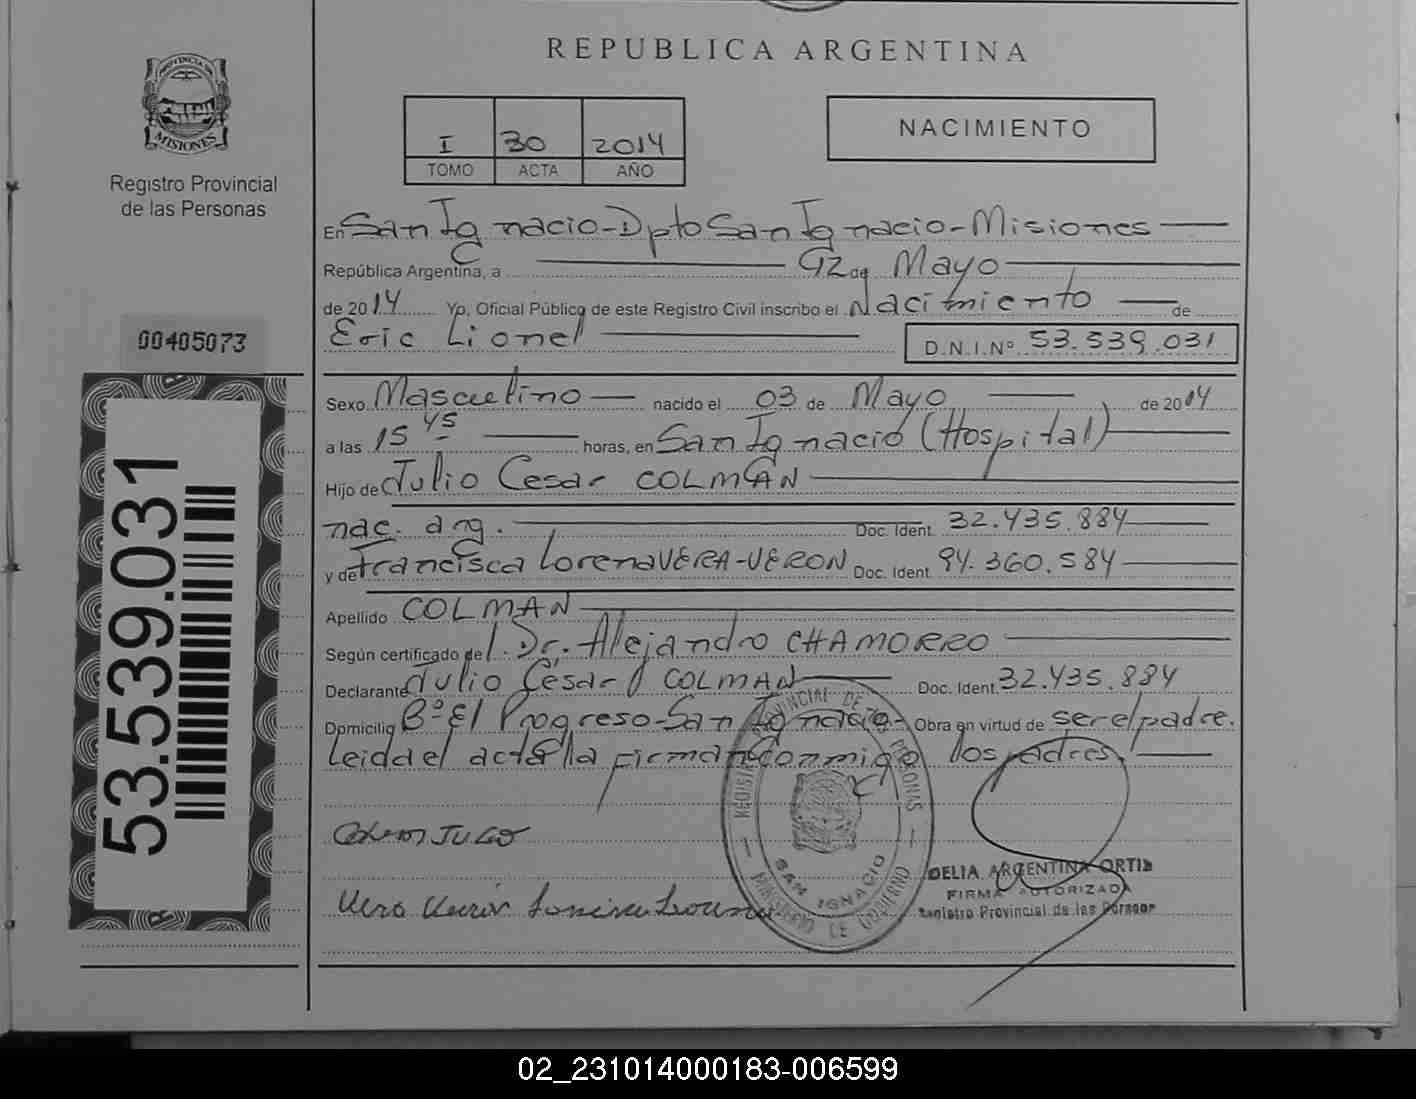 REPUBLICA ARGENTINA
PROVINCIA DE
MISIONES
Registro Provincial
de las Personas
I 30 2014
TOMO ACTA AÑO
NACIMIENTO
En San Ignacio - Dpto San Ignacio - Misiones
República Argentina, a 12 de Mayo
de 2014 Yo, Oficial Público de este Registro Civil inscribo el Nacimiento de
Eric Lionel D.N.I.Nº 53.539.031
00405073
Sexo Masculino nacido el 03 de Mayo de 2014
a las 15 45 horas, en San Ignacio (Hospital)
Hijo de Julio Cesar COLMAN
nac. arg. Doc. Ident. 32.435.884
y de Francisca Lorena VERA-VERON Doc. Ident. 94.360.584
Apellido COLMAN
Según certificado del Dr. Alejandro CHAMORRO
Declarante Julio Cesar COLMAN Doc. Ident. 32.435.884
Domicilio Bº El Progreso - San Ignacio - Obra en virtud de ser el padre.
Leida el acta la firman conmigo los padres.
53.539.031
REGISTRO PROVINCIAL DE LAS PERSONAS
SAN IGNACIO
MINISTERIO DE GOBIERNO
DELIA ARGENTINA ORTIZ
FIRMA AUTORIZADA
Registro Provincial de las Personas
02_231014000183-006599